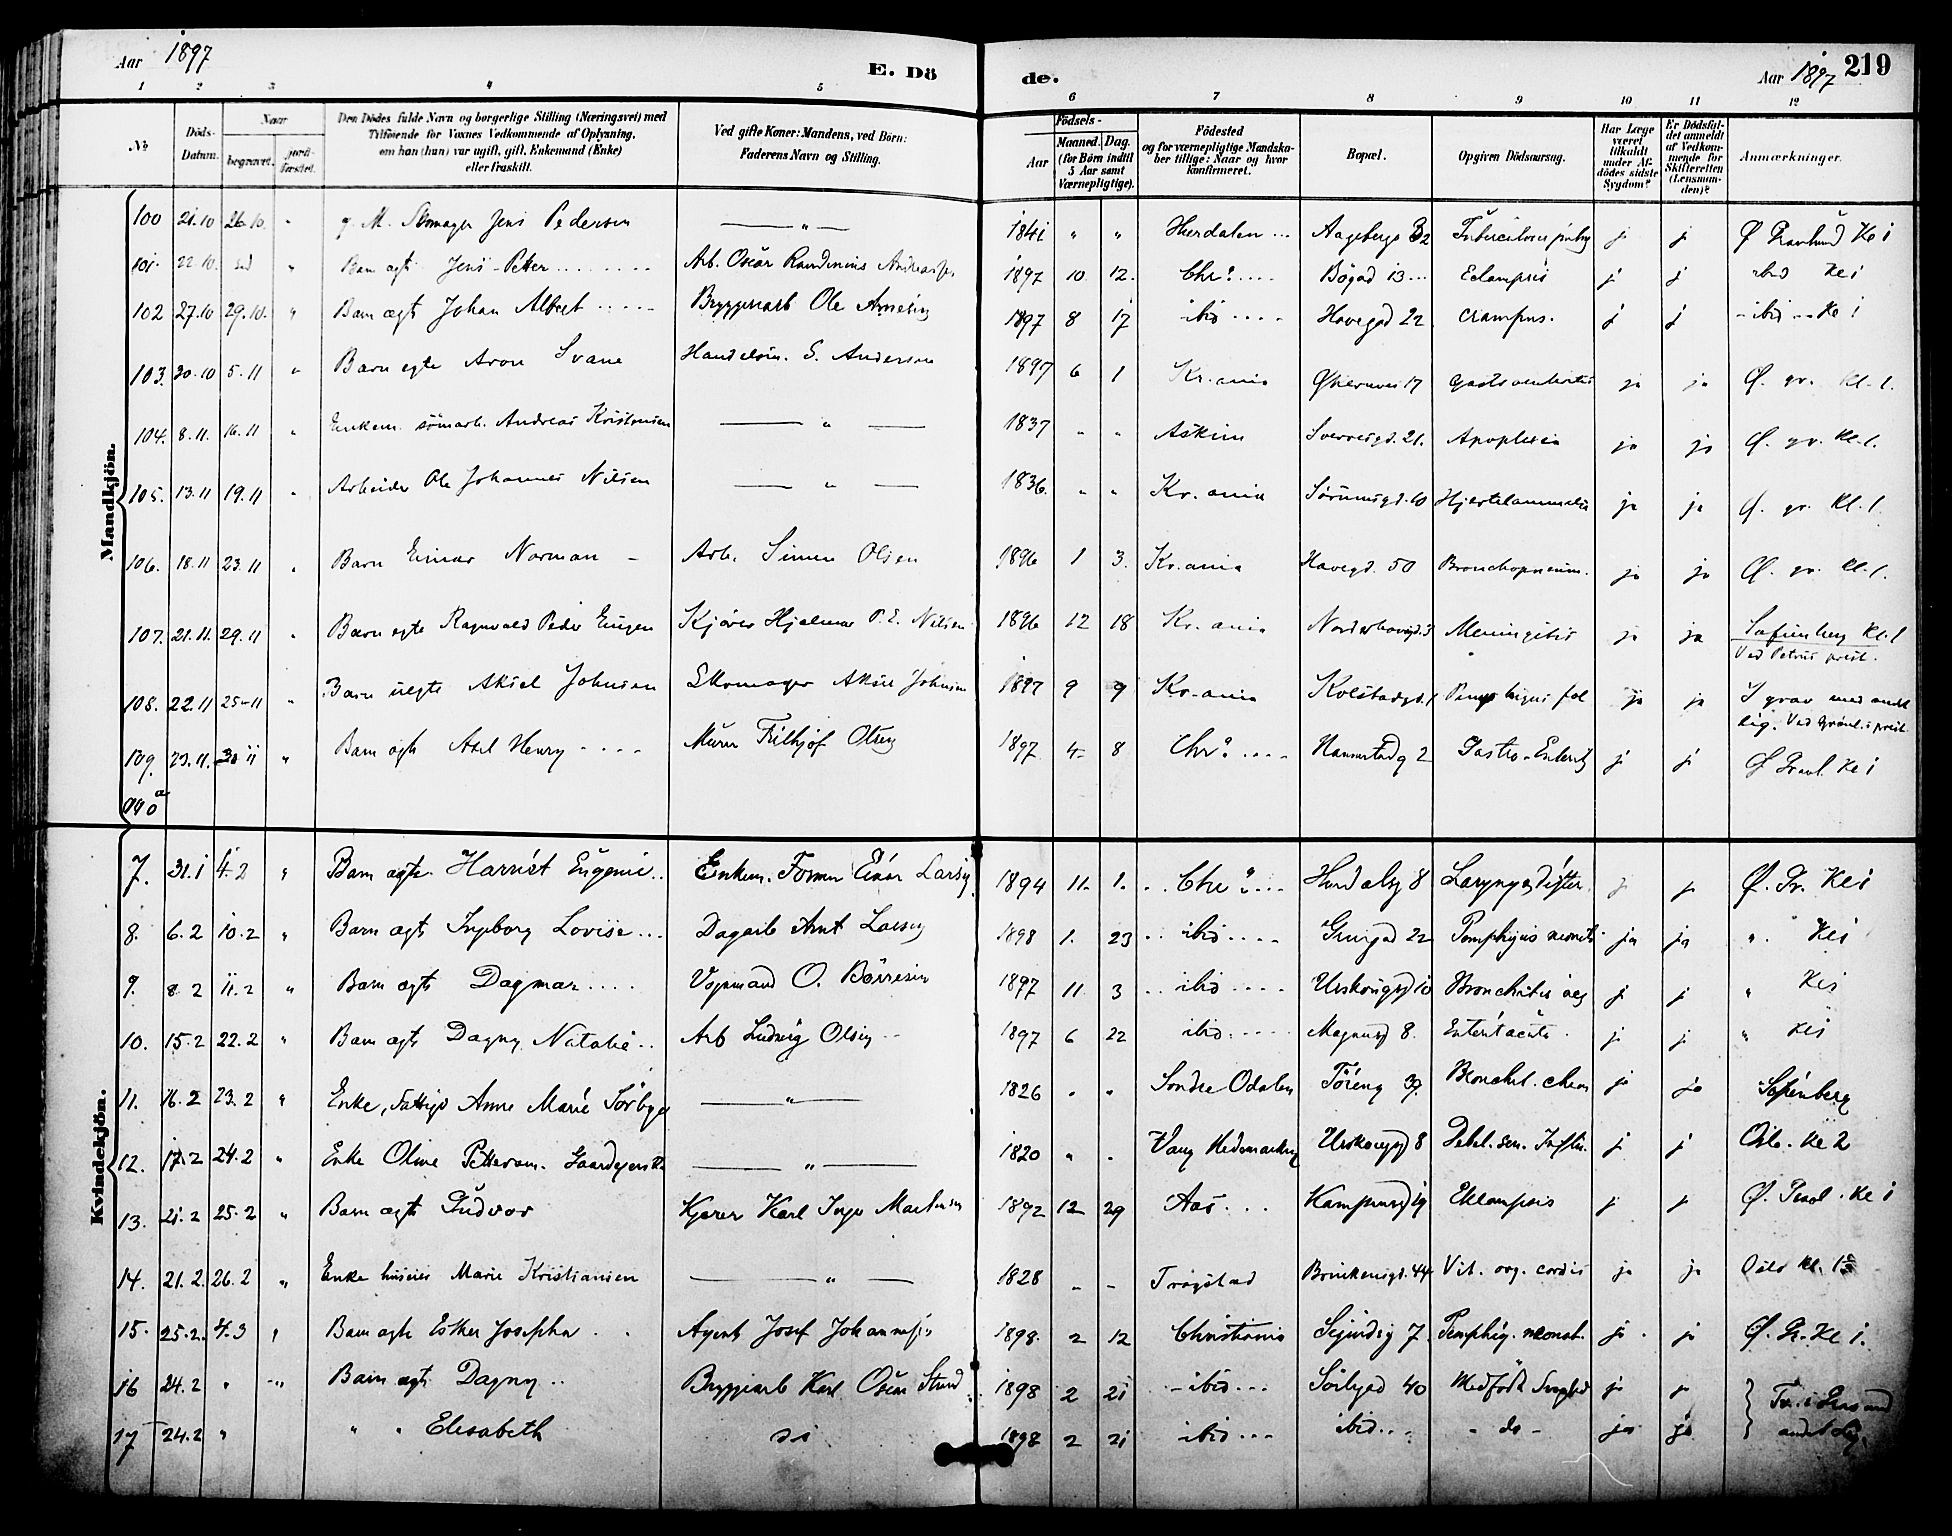 Aar 1897
E. Dö
de.
Aar 1897 219
1 2 3 4 5 6 7 8 9 10 11 12
No
Döds-Datum.
Naar
begravet.
jordfæstet.
Den Dödes fulde Navn og borgerlige Stilling (Næringsvei) med Tilföiende for Voxnes Vedkommende af Oplysning, om han (hun) var ugift, gift, Enkemand (Enke) eller fraskilt.
Ved gifte Koner: Mandens, ved Börn: Faderens Navn og Stilling.
Födsels-
Aar
Maaned. Dag.
(for Börn indtil 5 Aar samt Værnepligtige).
Födested
og for værnepligtige Mandskaber tillige: Naar og hvor konfirmeret.
Bopæl.
Opgiven Dödsaarsag.
Har Læge været tilkaldt under Afdödes sidste Sygdom?
Er Dödsfaldet anmeldt af Vedkommende for Skifteretten (Lensmanden)?
Anmærkninger.
Mandkjön.
100 21.10 26.10 " g. M. Skomager Jens Pedersen — " — 1841 " " j j Kl 1
101 22.10 " Barn ægt. Jens Petter Arb. Oscar 1897 10 12. Chr? Bögad 13 Eclampsis j j ibid Kl 1
102 27.10 29.10. " Barn ægt Johan Albert Bryggeriarb Ole 1897 8 17 ibid Havegad 22 j j ibid Kl 1
103. 30.10 5.11 " Barn egte Aron Svane Handelsm. S. Anderson 1897 6 1 Kr.ania 17 ja ja Ø. gr. Kl. 1.
104. 8.11. 16.11 " Enkem. Andreas Kristensen — " — 1837 " " Askim Sverresgd. 21. Apoplexia ja ja Ø. gr. Kl. 1.
105. 13.11 19.11 " Arbeider Ole Johannes Nilsen — " — 1836. " " Kr.ania Sörumsgd. 10 ja ja Ø. gr. Kl. 1.
106. 18.11 23.11 " Barn Einar Norman Arb. Simen Olsen 1896 1 3. Kr.ania Havegd. 50 Bronchopneum. ja ja Ø. gr. Kl. 1.
107. 21.11. 29.11 " Barn egte Ragnvald Peder Eugen Kjörer Hjalmar P. E. Nilsen 1896 12 18 Kr.ania Norderhovgd. 3 Meningitis ja ja Sofienberg Kl. 1
Ved Petrus prest.
108. 22.11 25-11 " Barn uegte Aksel Johnsen Skomager Aksel Johnsen 1897 9 9 Kr.ania Kolstadgd. 1 Pemphigus fol ja ja I grav med andet
lig. Ved Grönl.s prest.
109. 23.11. 30 11 " Barn ægte Axel Henry Murer Frithjof Olsen 1897 4 8 Chr? 2 Gastro-Enterit j j Ø Kl 1
110
Kvindekjön.
7. 31.1 4.2 " Barn ægte Harriet Eugenie Enkem. Former Einar Larsen 1894 11. 1. Chr? Hurdalsg 8 j j Ø. Gr. Kl 1
8. 6.2 10.2 " Barn ægte Ingeborg Lovise Dagarb Arnt Larsen 1898 1. 23 ibid 22 Pemphigus neonat. ja ja " Kl 1
9. 8.2 11.2 " Barn ægte Dagmar Vognmand O. Börresen 1897 11 3 ibid Urskougsgd 10 Bronchitis j j " Kl 1
10. 15.2 22.2 " Barn ægte Dagny Natalie Arb Ludvig Olsen 1897 6 22 ibid Magnusgd 8. j j " Kl 1
11. 16.2 23.2 " Enke, Fattigu Anne Marie Sörbye — " — 1826 " " Söndre Odalen Töieng 37. j ja Sofienberg
12. 17.2 24.2 " Enke Oline Petterson — " — 1820 " " Vang Hedemarken Urskougsgd 8 Debil. sen. j j Oslo Kl 2
13. 21.2 25.2 " Barn ægte Gudvor Kjörer Karl Inge Martinsen 1892 12 29 Aas Kampensgd 19 Eklampsis j j Ø. Kl 1
14. 21.2. 26.2 " Enke Marie Kristiansen — " — 1828 - - Trögstad Brinkensgd. 44 Vit. org. cordis ja ja Oslo Kl. 1
15. 25.2. 4.3 " Barn ægte Esther Josepha Agent Josef Johannesen 1898. 2 12 Christiania 7. Pemphig. neonat. ja ja Ø. Gr. Kl 1.
16 24.2 " " Barn ægte Dagny Bryggeriarb Karl Oscar Strand 1898 2 21 ibid Sörligad 40 Medfödt Svaghed j j
17 24.2 " " " Elisabeth 1898 2 21 ibid ibid do ja ja andet Lig.